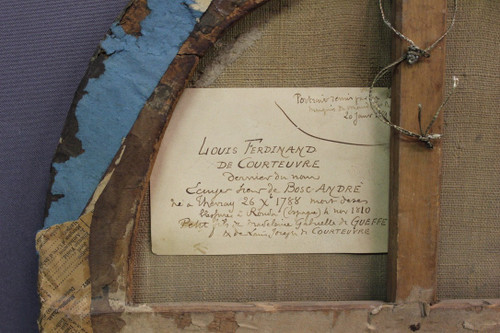 Portrait remis par
26 Janv
LOUIS FERDINAND
DE COURTEUVRE
dernier du nom
Ecuyer Sieur de BOSC ANDRÉ
né à Thevray 26 Xe 1788 mort de ses
blessures à Ronda (Espagne) 16 nov 1810
Petit fils de Madeleine Gabrielle de GUEFFE
& de Louis Joseph de COURTEUVRE